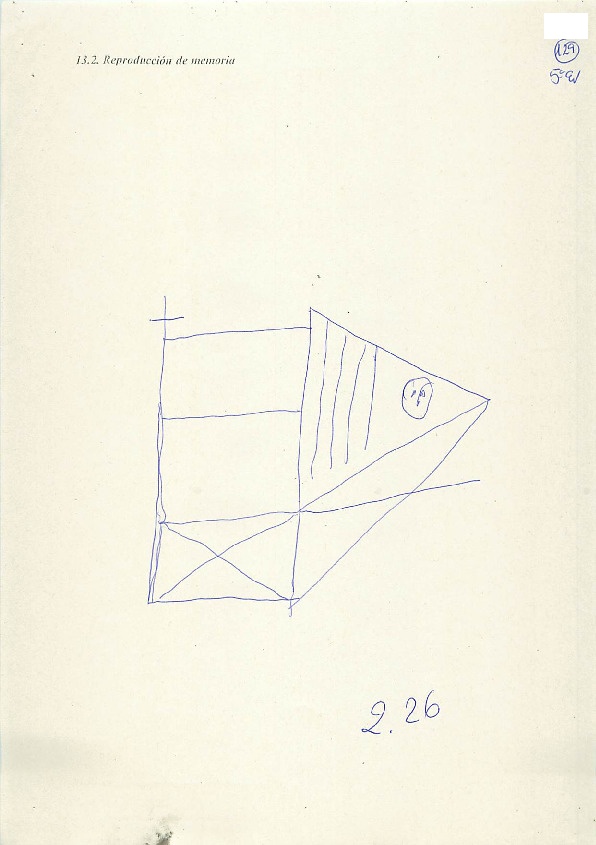 13.2. Reproducción de memoria
129
2.26